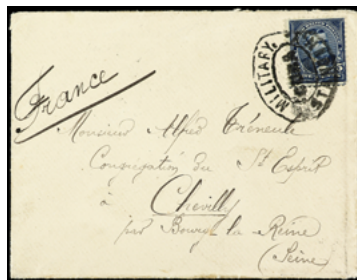 MILITARY
France
Monsieur Alfred
Congrégation du St Esprit
à Chevilly
par Bourg la Reine
(Seine)